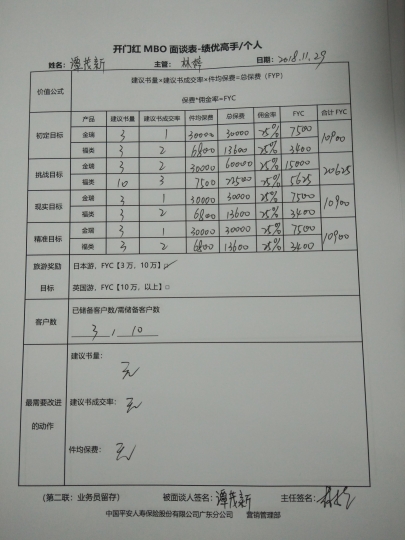 开门红 MBO 面谈表-绩优高手/个人
姓名: 潭茂新 主管: 林婷 日期: 2018.11.29
价值公式 建议书量×建议书成交率×件均保费=总保费(FYP)
保费*佣金率=FYC
产品 建议书量 建议书成交率 件均保费 总保费 佣金率 FYC 合计FYC
初定目标 金瑞 3 1 30000 30000 25% 7500 10900
福类 3 2 6800 13600 25% 3400
挑战目标 金瑞 3 2 30000 60000 25% 15000 20625
福类 10 3 7500 22500 25% 5625
现实目标 金瑞 3 1 30000 30000 25% 7500 10900
福类 3 2 6800 13600 25% 3400
精准目标 金瑞 3 1 30000 30000 25% 7500 10900
福类 3 2 6800 13600 25% 3400
旅游奖励目标 日本游,FYC【3万,10万】☑
英国游,FYC【10万,以上】□
客户数 已储备客户数/需储备客户数
3 , 10
最需要改进的动作 建议书量:
无
建议书成交率: 无
件均保费: 无
(第二联:业务员留存) 被面谈人签名: 潭茂新 主任签名:
中国平安人寿保险股份有限公司广东分公司 营销管理部